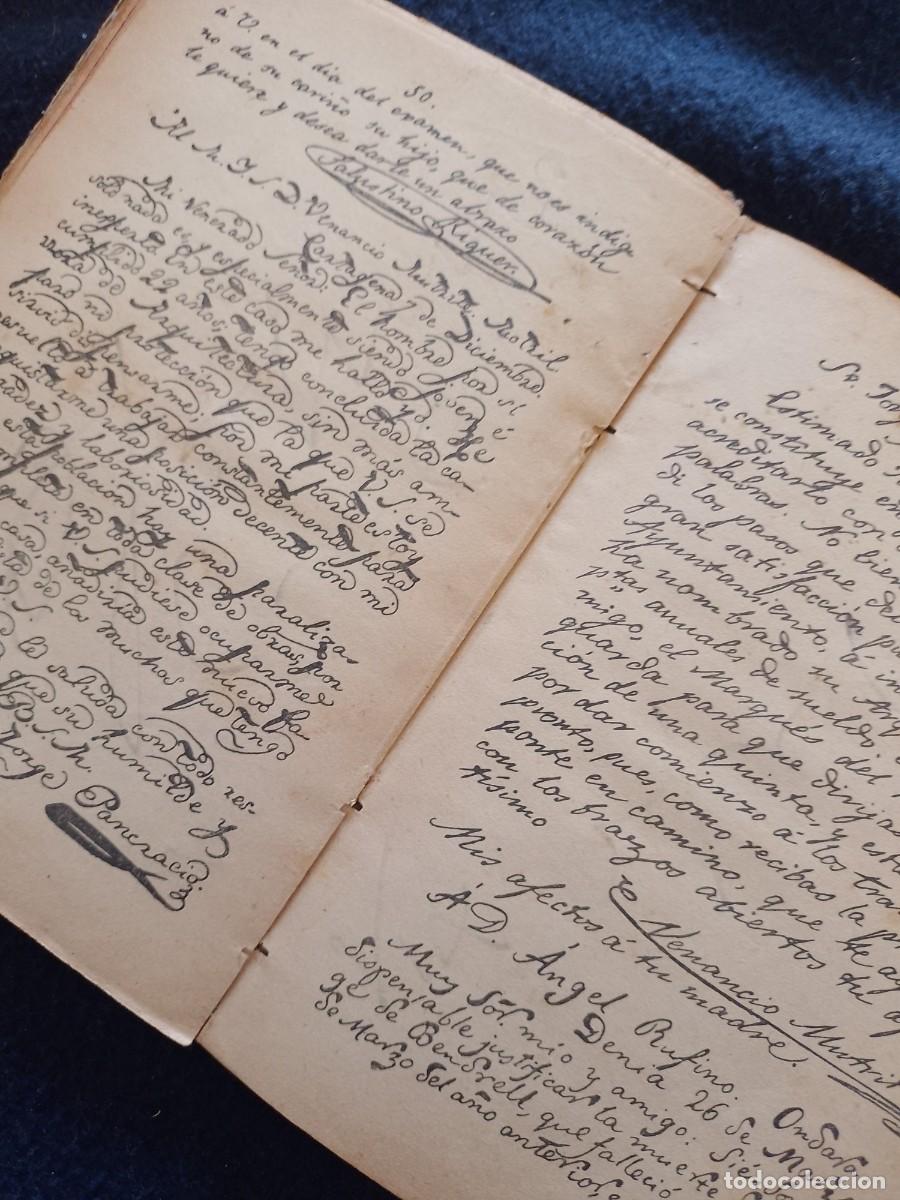 50.
á V. en el dia del examen, que no es indig-
no de su cariño su hijo, que de corazón
le quiere y desea darle un abrazo
Al M. Y. S. D. Venancio Mutril
Cartagena 7 de Diciembre.
Mi Venerado Señor: El hombre por sí
solo nada es y especialmente siendo joven é
inesperto. En este caso me hallo yo. He
cumplido 22 años, tengo concluida la ca-
de Arquitectura, sin más am-
paro ni protección que la que V. S. se
sirvió dispensarme; por mi parte estoy
resuelto á trabajar constantemente para
una posición decente con mi
y laboriosidad.
población hay una paraliza-
en toda clase de obras, por
que si V. S. pudiese ocuparme
casa, añadiría este nuevo fa-
de los muchos que tengo
V. S.
le saluda con todo res-
que su humilde y
B. S. M.
Jorge Pancracio
Sr. Jor
Estimado
se constituye en
acreditarlo con
palabras. No tien
di los pasos que de
gran satisfacción pa
Ayuntamiento, á in
ha nombrado su Arq
ptas anuales de sueldo,
migo, el Marqués del
guarda para que dirijas
ción de una quinta, y esta
por dar comienzo á los tra
pronto, pues, como recibas la p
ponte en camino, que te ag
con los brazos abiertos tu af
tísimo
Venancio Mutril
Mis afectos á tu madre.
Á D. Ángel Rufino. Ondara
Denia 26 de M
Muy Sor. mío y amigo: Siéndo
dispensable justificar la muert
ge de Bendrell, que falleció
de Marzo del año anterior,
todocoleccion